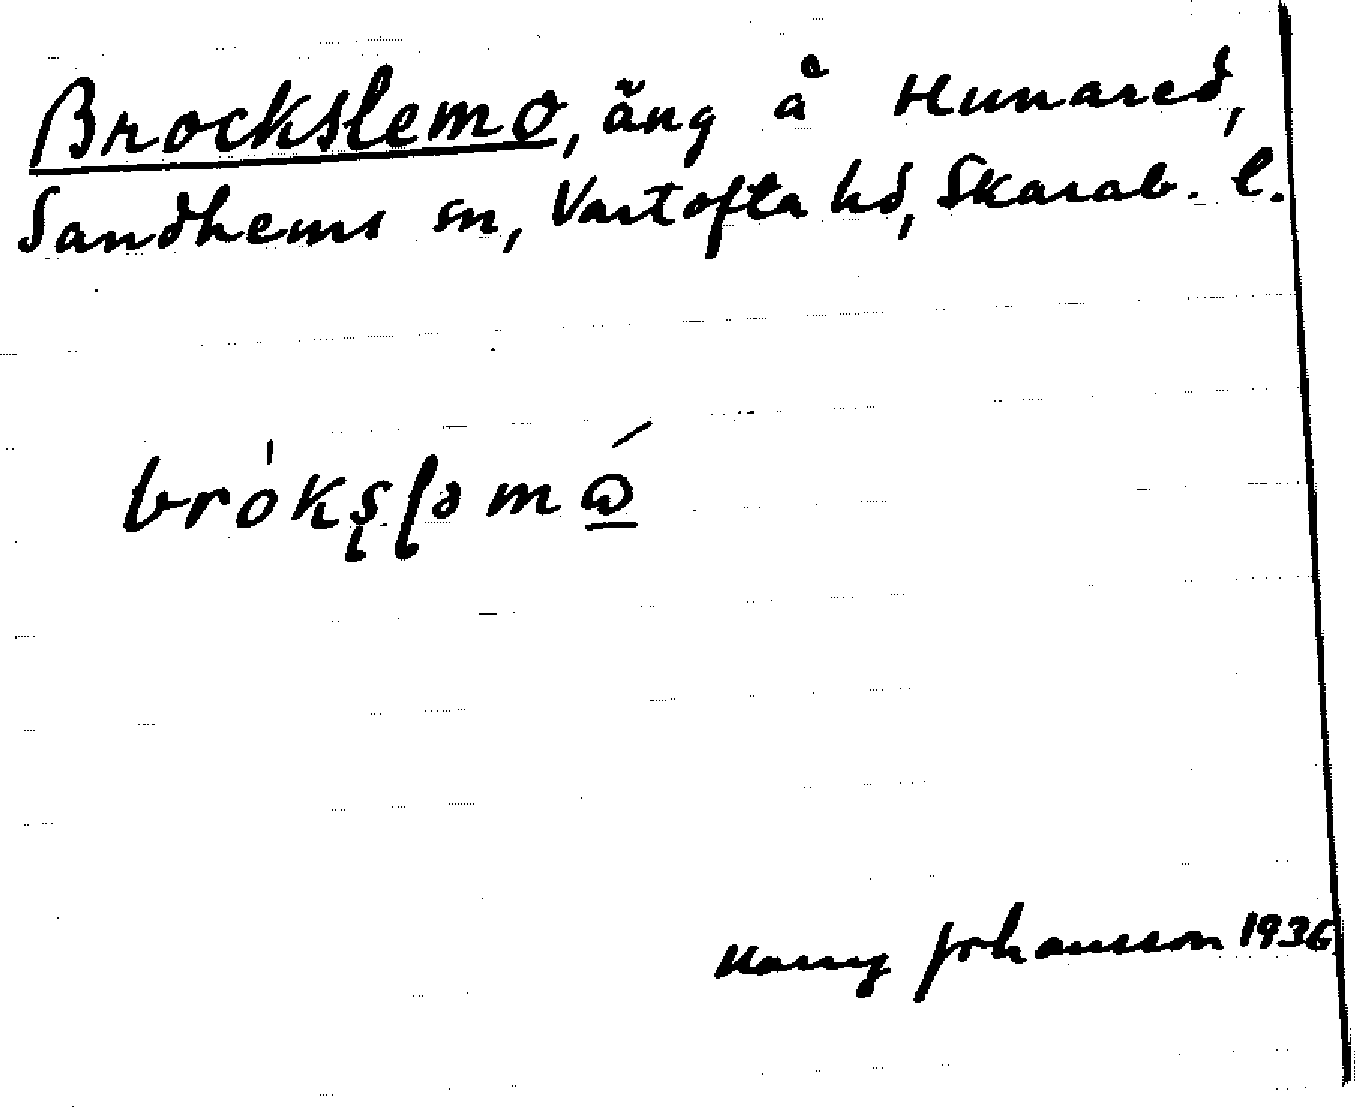 Brockslemo, äng å Hunared,
Sandhems sn, Vartofta hd, Skarab. l.
bróksləmω
Harry Johansson 1936